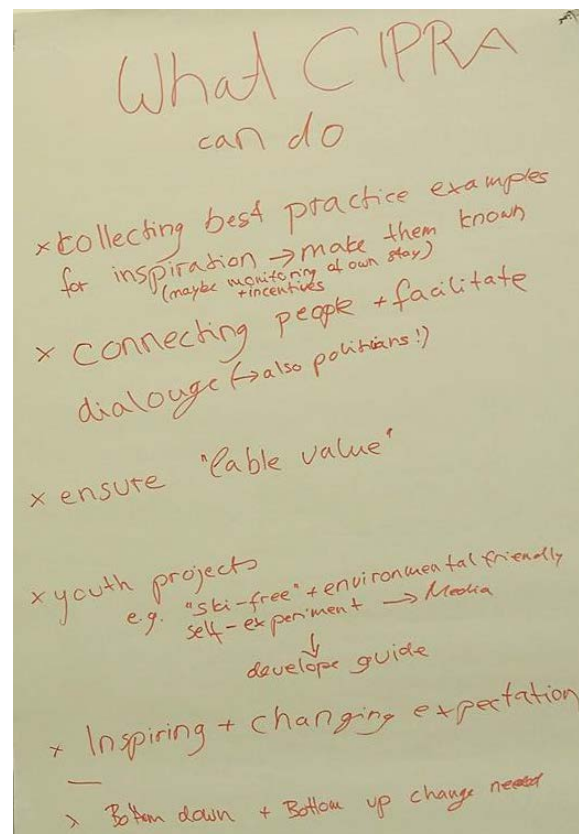 What CIPRA
can do
× collecting best practice examples
for inspiration → make them known
(maybe monitoring of own stay)
+incentives
× connecting people + facilitate
dialouge (→ also politicians!)
× ensure "lable value"
× youth projects
e.g. "ski-free" + environmental friendly
self-experiment → Media
↓
develope guide
× Inspiring + changing expectation
—
> Bottom down + Bottom up change needed